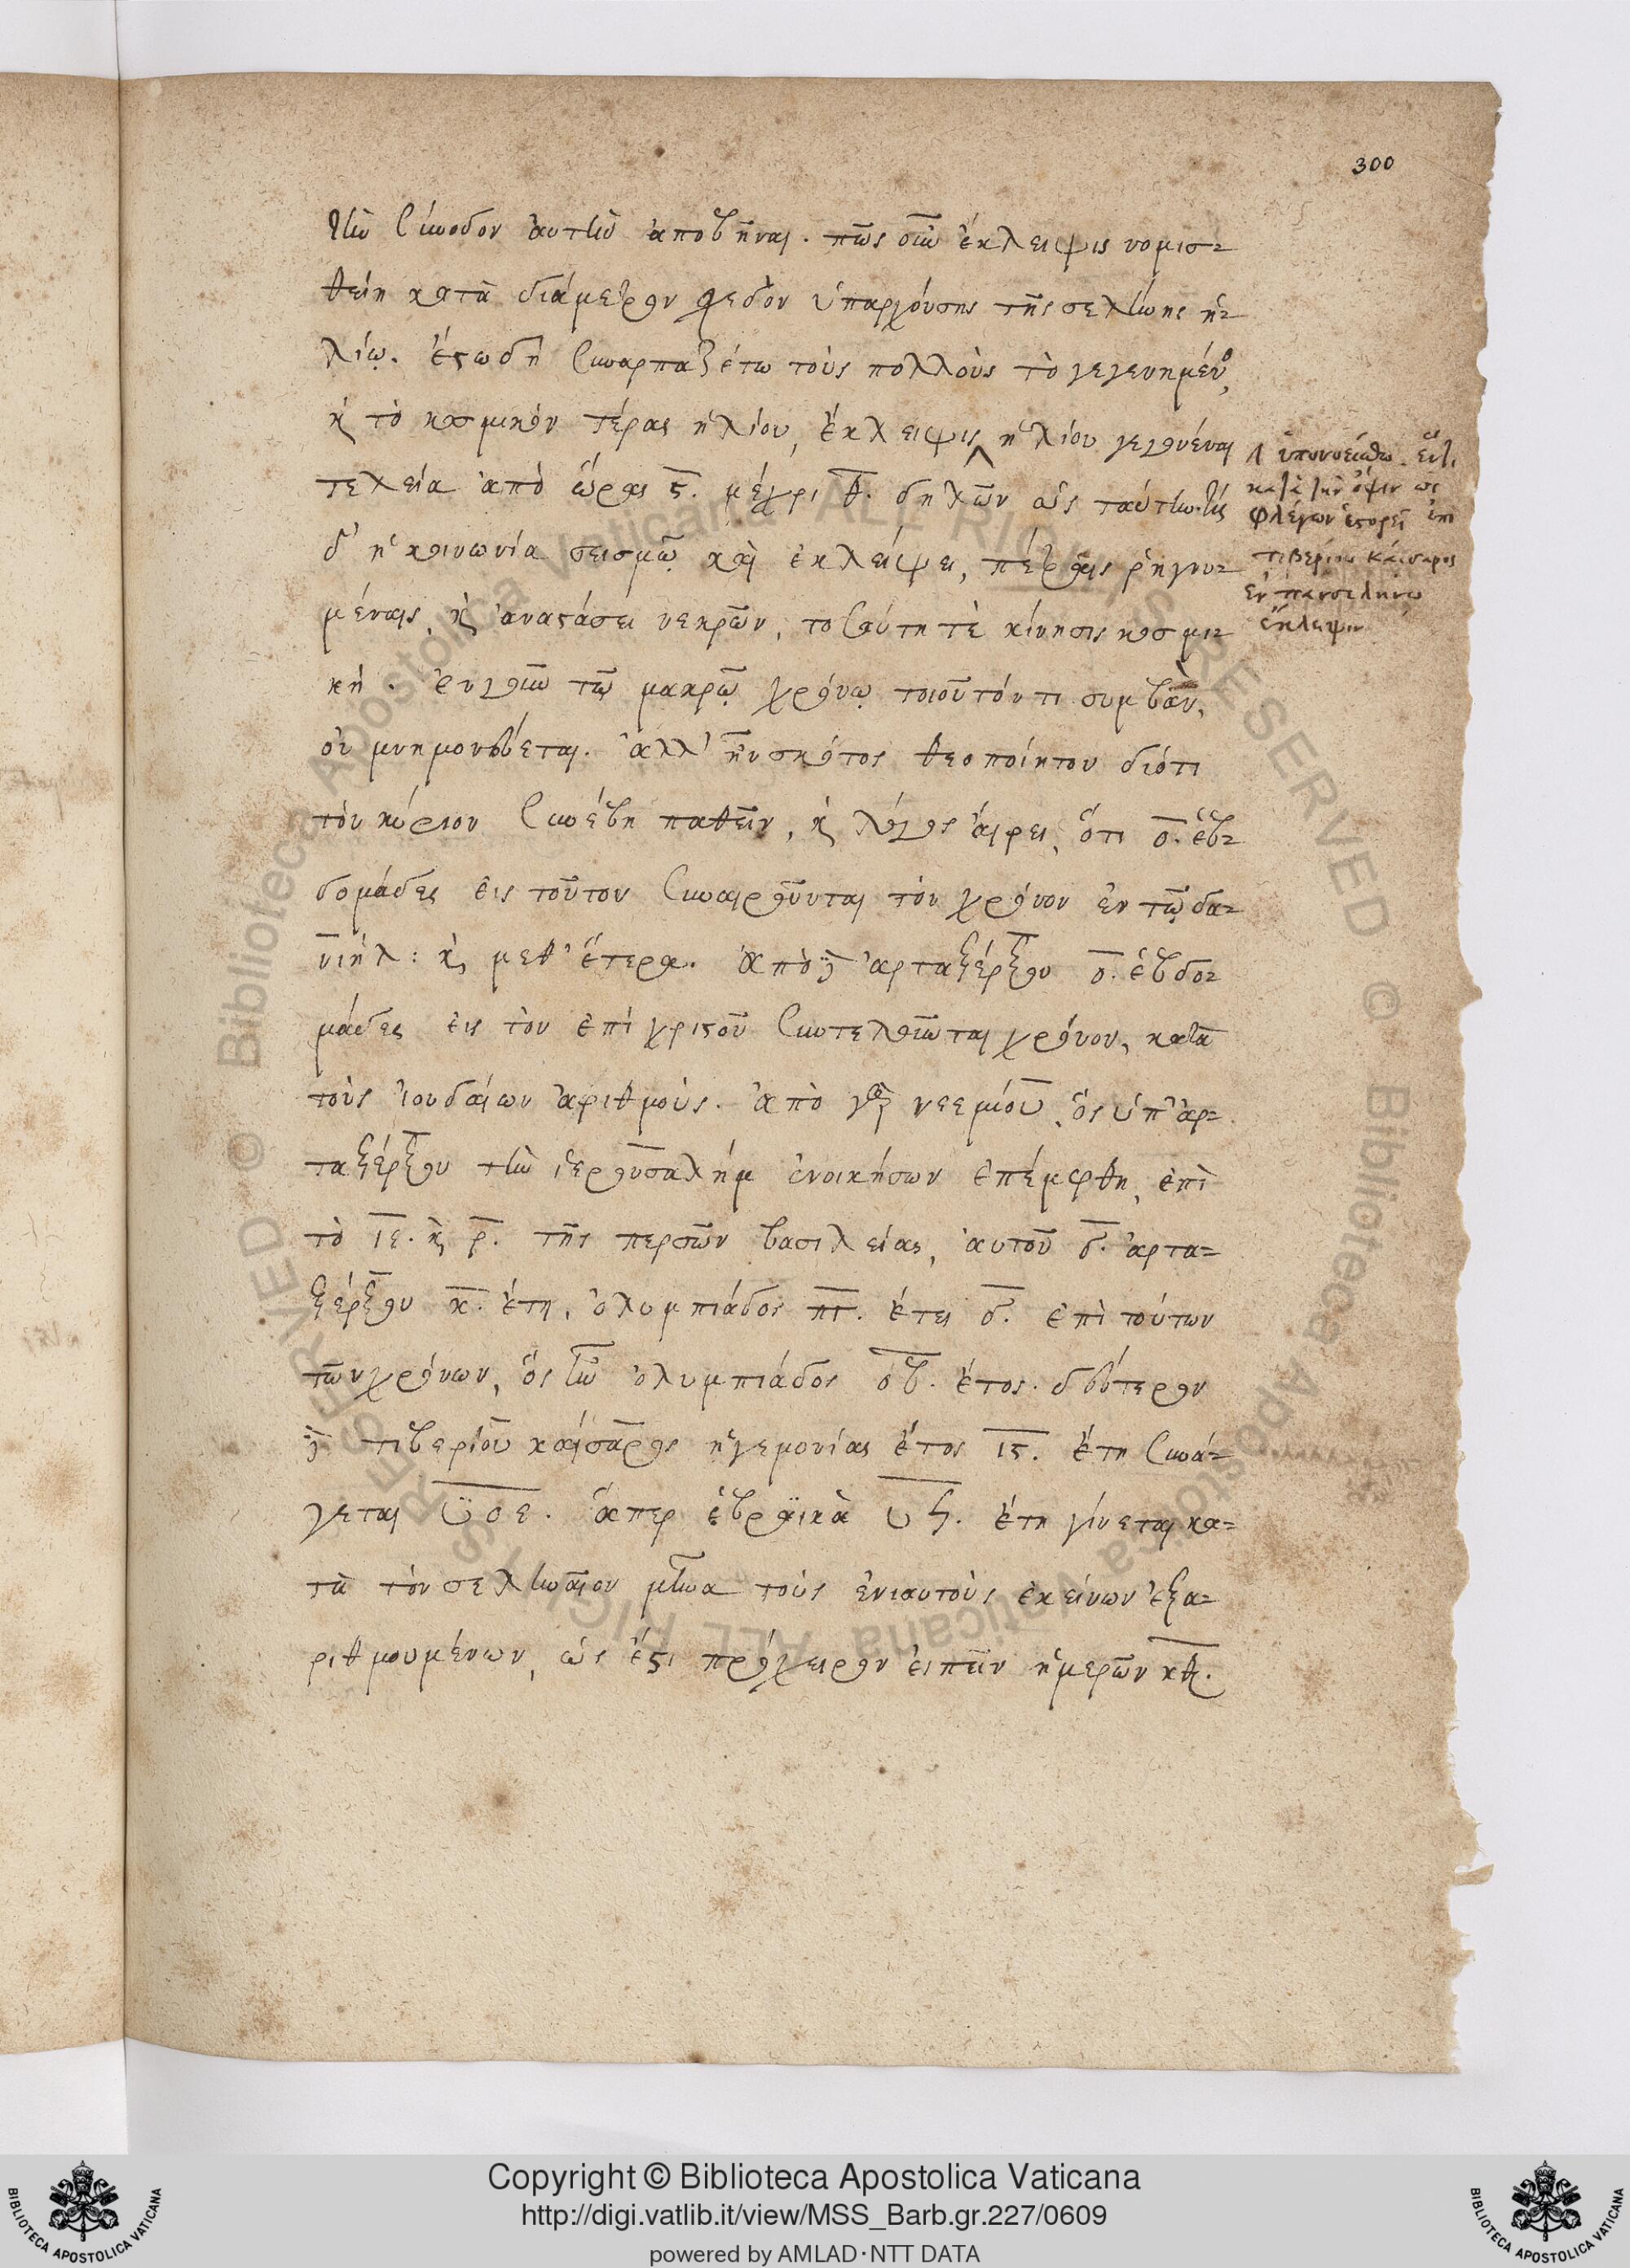 300
τὴν σύνοδον αὐτὴν ἀποβῆναι. πῶς οὖν ἔκλειψις νομισ=
θείη κατὰ διάμετρον σχεδὸν ὑπαρχούσης τῆς σελήνης ἡ=
λίῳ. ἔστω δὴ συναρπαζέτω τοὺς πολλοὺς τὸ γεγενημένον,
καὶ τὸ κοσμικὸν τέρας ἡλίου, ἔκλειψις ἡλίου γεγονέναι
τελεία ἀπὸ ὥρας ς. μέχρι θ. δηλῶν ὡς ταύτην. τίς
δ' ἡ κοινωνία σεισμῷ καὶ ἐκλείψει, πέτραις ῥηγνυ=
μέναις, καὶ ἀναστάσει νεκρῶν, τοσαύτη τὲ κίνησις κοσμι=
κή. ἐν γοῦν τῷ μακρῷ χρόνῳ τοιοῦτόν τι συμβὰν,
οὐ μνημονεύεται. ἀλλ' ἦν σκότος θεοποίητον διότι
τὸν κύριον συνέβη παθεῖν, καὶ λόγος αἱρεῖ, ὅτι ο. ἑβ=
δομάδες εἰς τοῦτον συναιροῦνται τὸν χρόνον ἐν τῷ δα=
νιήλ: καὶ μεθ' ἕτερα. ἀπὸ δὲ ἀρταξέρξου ο. ἑβδο=
μάδες εἰς τὸν ἐπὶ χριστοῦ συντελοῦνται χρόνον, κατὰ
τοὺς ἰουδαίων ἀριθμούς. ἀπὸ γὰρ νεεμίου, ὃς ὑπ' ἀρ=
ταξέρξου τὴν ἱερουσαλήμ ἐνοικήσων ἐπέμφθη, ἐπὶ
τὸ ιε. καὶ ρ. τῆς περσῶν βασιλείας, αὐτοῦ δ. ἀρτα=
ξέρξου κ. ἔτη, ὀλυμπιάδος πγ. ἔτει δ. ἐπὶ τούτων
τῶν χρόνων, ὃς ἦν ὀλυμπιάδος σβ. ἔτος. δεύτερον
δὲ τιβερίου καίσαρος ἡγεμονίας ἔτος ις. ἔτη συνά=
γεται υοε. ἅπερ ἑβραϊκὰ υϟ. ἔτη γίνεται κα=
τὰ τὸν σεληναῖον μῆνα τοὺς ἐνιαυτοὺς ἐκείνων ἐξα=
ριθμουμένων, ὡς ἔστι πρόχειρον εἰπεῖν ἡμερῶν κθ.
ὑπονοείσθω. ἐν τῇ
κατὰ τὴν ὄψιν ὡς
φλέγων ἱστορεῖ ἐπὶ
τιβερίου καίσαρος
ἐν πανσελήνῳ
ἔκλειψιν
Copyright © Biblioteca Apostolica Vaticana
http://digi.vatlib.it/view/MSS_Barb.gr.227/0609
powered by AMLAD·NTT DATA
BIBLIOTECA APOSTOLICA VATICANA
BIBLIOTECA APOSTOLICA VATICANA
© Biblioteca Apostolica Vaticana ALL RIGHTS RESERVED © Biblioteca Apostolica Vaticana ALL RIGHTS RESERVED